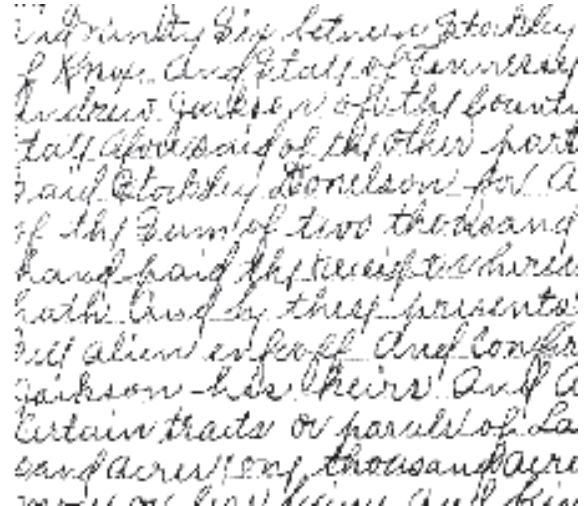 and ninety Six between Stockley
of Knox And State of Tennessee
Andrew Jackson of the Count
tate aforesaid of the other part
said Stockley Donelson for A
of the Sum of two thousand
hand paid the receipt wherein
hath And by these presents
sell alien enfeoff And Confir
Jackson his heirs And A
Certain traits or parsels of La
sand Acres one thousand Acre